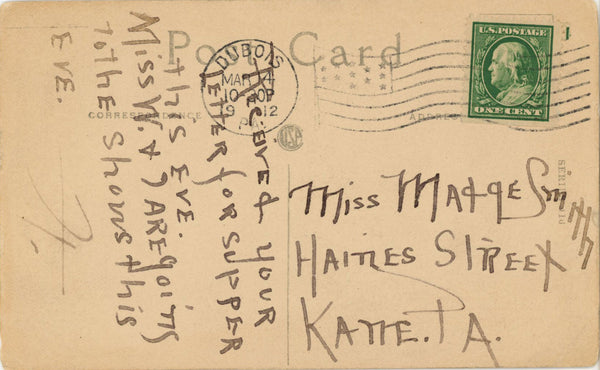 Post Card
DUBOIS
MAR 4
10
12
PA.
U.S. POSTAGE
ONE CENT
CORRESPONDENCE
ADDRESS
Received your
letter for supper
this eve.
Miss W. & I are going
to the shows this
eve.
H.
Miss Madge Smith
Haines Street
Kane. PA.